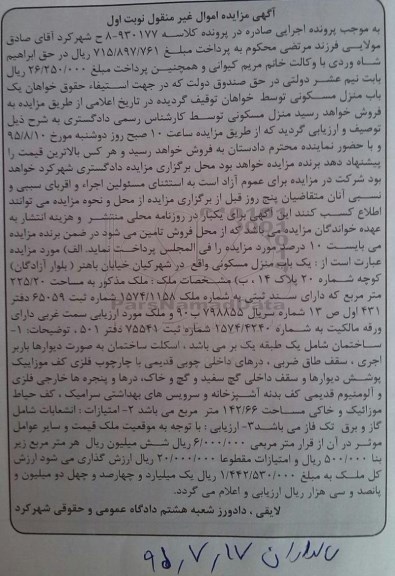 آگهی مزایده اموال غیر منقول نوبت اول
به موجب پرونده اجرایی صادره در پرونده کلاسه ۹۳۰۱۷۷-۸ ح شهرکرد آقای صادق
مولایی فرزند مرتضی محکوم به پرداخت مبلغ ۷۱۵/۸۹۷/۷۶۱ ریال در حق ابراهیم
شاه وردی با وکالت خانم مریم کیوانی و همچنین پرداخت مبلغ ۲۶/۲۵۰/۰۰۰ ریال
بابت نیم عشر دولتی در حق صندوق دولت که در جهت استیفاء حقوق خواهان یک
باب منزل مسکونی توسط خواهان توقیف گردیده در تاریخ اعلامی از طریق مزایده به
فروش خواهد رسید منزل مسکونی توسط کارشناس رسمی دادگستری به شرح ذیل
توصیف و ارزیابی گردید که از طریق مزایده ساعت ۱۰ صبح روز دوشنبه مورخ ۹۵/۸/۱۰
و با حضور نماینده محترم دادستان به فروش خواهد رسید و هر کس بالاترین قیمت را
پیشنهاد دهد برنده مزایده خواهد بود محل برگزاری مزایده دادگستری شهرکرد خواهد
بود شرکت در مزایده برای عموم آزاد است به استثنای مسئولین اجراء و اقربای سببی و
نسبی آنان متقاضیان پنج روز قبل از برگزاری مزایده از محل و نحوه مزایده می توانند
اطلاع کسب کنند این آگهی برای یکبار در روزنامه محلی منتشر و هزینه انتشار به
عهده خواندگان مزایده می باشد که از محل فروش تامین می شود در ضمن برنده مزایده
می بایست ۱۰ درصد مورد مزایده را فی المجلس پرداخت نماید. الف) مورد مزایده
عبارت است از : یک باب منزل مسکونی واقع در شهرکیان خیابان باهنر ( بلوار آزادگان)
کوچه شماره ۲۰ پلاک ۱۴ ، ب) مشخصات ملک : ملک مذکور به مساحت ۲۲۵/۲۰
متر مربع که دارای سند ثبتی به شماره ملک ۱۵۷۴/۱۱۵۸ شماره ثبت ۶۵۰۵۹ دفتر
۴۳۱ اول ص ۱۳ شماره سریال ۷۹۸۸۵۵ ب ۹۰ و ملک مورد ارزیابی سمت غربی دارای
ورقه مالکیت به شماره ۱۵۷۴/۴۲۴۰ شماره ثبت ۷۵۵۴۱ دفتر ۵۰۱ ، توضیحات: ۱-
ساختمان شامل یک طبقه یک بر می باشد ، اسکلت ساختمان به صورت دیوارها باربر
اجری ، سقف طاق ضربی ، درهای داخلی چوبی قدیمی با چارچوب فلزی کف موزاییک
پوشش دیوارها و سقف داخلی گچ سفید و گچ و خاک، درها و پنجره ها خارجی فلزی
و آلومنیوم قدیمی کف بدنه آشپزخانه و سرویس های بهداشتی سرامیک ، کف حیاط
موزائیک و خاکی مساحت ۱۴۲/۶۶ متر مربع می باشد ۲- امتیازات : انشعابات شامل
گاز و برق تک فاز می باشد۳- ارزیابی : با توجه به موقعیت ملک قیمت و سایر عوامل
موثر در آن از قرار متر مربعی ۶/۰۰۰/۰۰۰ ریال شش میلیون ریال هر متر مربع زیر
بنا ۵۰۰/۰۰۰ ریال و امتیازات مقطوعا ۲۰/۰۰۰/۰۰۰ ریال ارزش گذاری می شود ارزش
کل ملک به مبلغ ۱/۴۴۲/۵۳۰/۰۰۰ ریال یک میلیارد و چهارصد و چهل دو میلیون و
پانصد و سی هزار ریال ارزیابی و اعلام می گردد.
لایقی ، دادورز شعبه هشتم دادگاه عمومی و حقوقی شهرکرد
۹۵,۷,۱۷